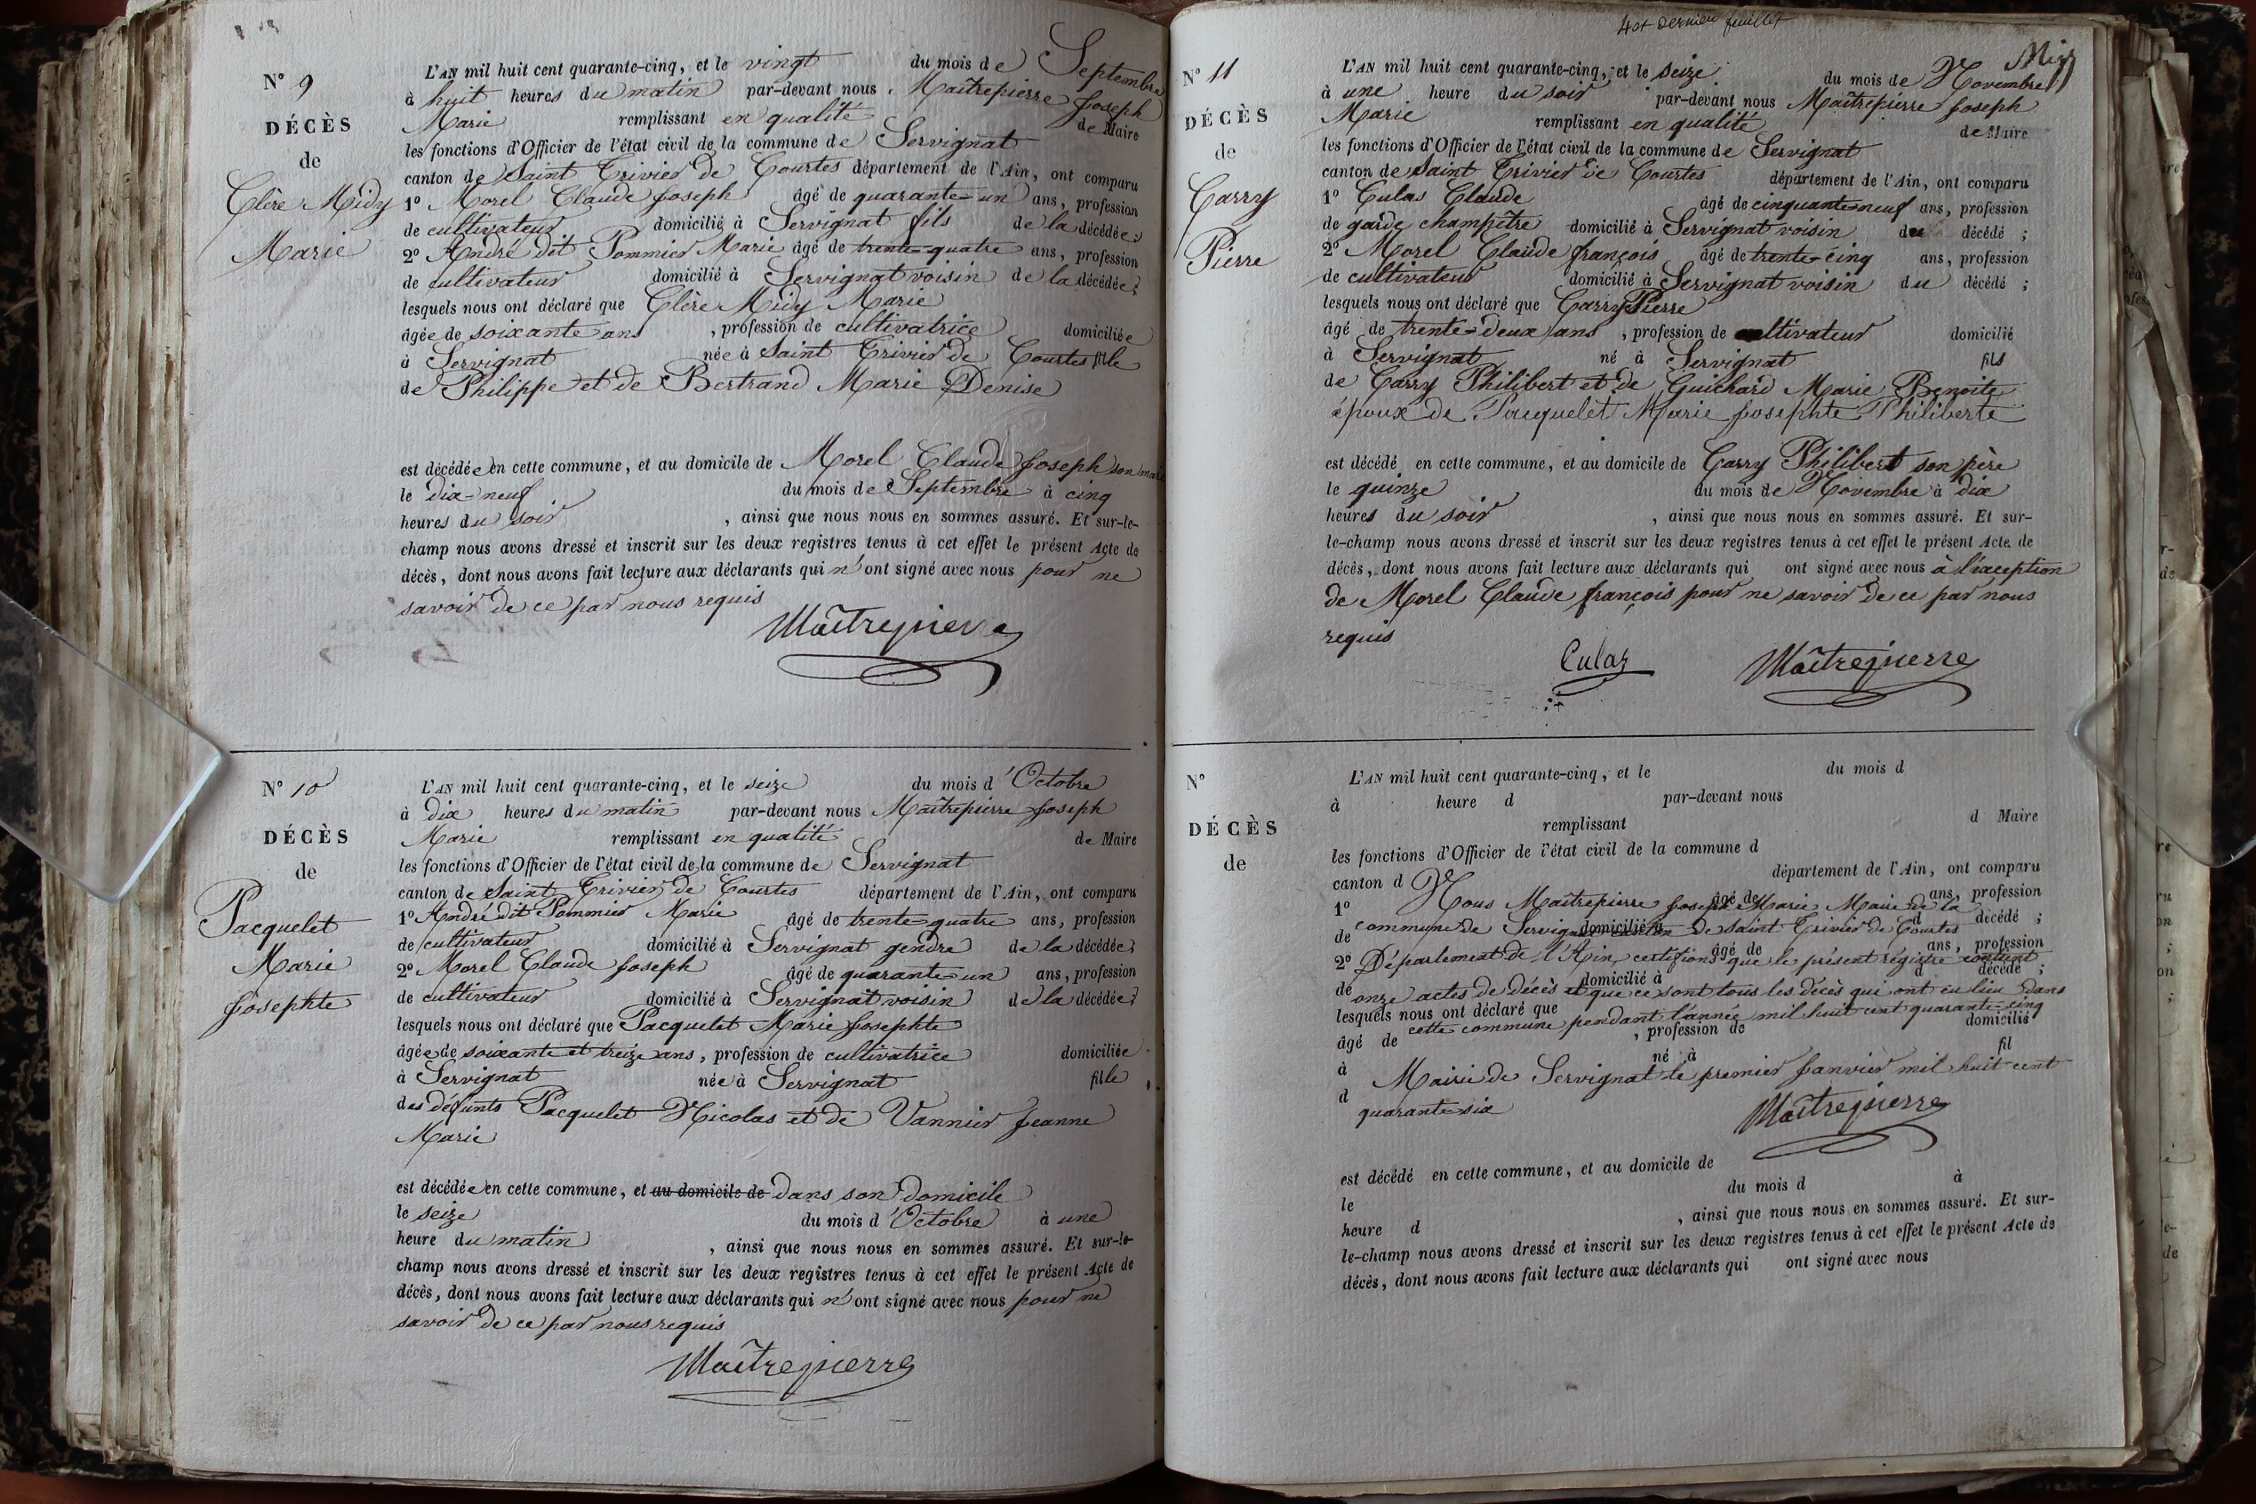 N° 9
DÉCÈS
de
Clère Midy
Marie
L'AN mil huit cent quarante-cinq, et le vingt du mois de Septembre
à huit heures du matin par-devant nous Maîtrepierre Joseph
Marie remplissant en qualité de Maire
les fonctions d'Officier de l'état civil de la commune de Servignat
canton de Saint Trivier de Courtes département de l'Ain, ont comparu
1° Morel Claude Joseph âgé de quarante-un ans, profession
de cultivateur domicilié à Servignat fils de la décédée;
2° André dit Pommier Marie âgé de trente-quatre ans, profession
de cultivateur domicilié à Servignat voisin de la décédée;
lesquels nous ont déclaré que Clère Midy Marie
âgée de soixante ans, profession de cultivatrice domiciliée
à Servignat née à Saint Trivier de Courtes fille
de Philippe et de Bertrand Marie Denise
est décédée en cette commune, et au domicile de Morel Claude Joseph son mari
le dix-neuf du mois de Septembre à cinq
heures du soir, ainsi que nous nous en sommes assuré. Et sur-le-
champ nous avons dressé et inscrit sur les deux registres tenus à cet effet le présent Acte de
décès, dont nous avons fait lecture aux déclarants qui n'ont signé avec nous pour ne
savoir de ce par nous requis
Maîtrepierre
N° 10
DÉCÈS
de
Pacquelet
Marie
Josephte
L'AN mil huit cent quarante-cinq, et le seize du mois d'Octobre
à dix heures du matin par-devant nous Maîtrepierre Joseph
Marie remplissant en qualité de Maire
les fonctions d'Officier de l'état civil de la commune de Servignat
canton de Saint Trivier de Courtes département de l'Ain, ont comparu
1° André dit Pommier Marie âgé de trente-quatre ans, profession
de cultivateur domicilié à Servignat gendre de la décédée;
2° Morel Claude Joseph âgé de quarante-un ans, profession
de cultivateur domicilié à Servignat voisin de la décédée;
lesquels nous ont déclaré que Pacquelet Marie Josephte
âgée de soixante et treize ans, profession de cultivatrice domiciliée
à Servignat née à Servignat fille
des défunts Pacquelet Nicolas et de Vannier Jeanne
Marie
est décédée en cette commune, et au domicile de dans son domicile
le seize du mois d'Octobre à une
heure du matin, ainsi que nous nous en sommes assuré. Et sur-le-
champ nous avons dressé et inscrit sur les deux registres tenus à cet effet le présent Acte de
décès, dont nous avons fait lecture aux déclarants qui n'ont signé avec nous pour ne
savoir de ce par nous requis
Maîtrepierre
4 et dernier feuillet
N° 11
DÉCÈS
de
Carry
Pierre
L'AN mil huit cent quarante-cinq, et le seize du mois de Novembre
à une heure du soir par-devant nous Maîtrepierre Joseph
Marie remplissant en qualité de Maire
les fonctions d'Officier de l'état civil de la commune de Servignat
canton de Saint Trivier de Courtes département de l'Ain, ont comparu
1° Culas Claude âgé de cinquante-neuf ans, profession
de garde champêtre domicilié à Servignat voisin du décédé;
2° Morel Claude françois âgé de trente-cinq ans, profession
de cultivateur domicilié à Servignat voisin du décédé;
lesquels nous ont déclaré que Carry Pierre
âgé de trente-deux ans, profession de cultivateur domicilié
à Servignat né à Servignat fils
de Carry Philibert et de Guichard Marie Benoite
époux de Pacquelet Marie Josephte Philiberte
est décédé en cette commune, et au domicile de Carry Philibert son père
le quinze du mois de Novembre à dix
heures du soir, ainsi que nous nous en sommes assuré. Et sur-
le-champ nous avons dressé et inscrit sur les deux registres tenus à cet effet le présent Acte de
décès, dont nous avons fait lecture aux déclarants qui ont signé avec nous à l'exception
de Morel Claude françois pour ne savoir de ce par nous
requis
Culaz Maîtrepierre
N°
DÉCÈS
de
L'AN mil huit cent quarante-cinq, et le du mois d
à heure d par-devant nous
remplissant d Maire
les fonctions d'Officier de l'état civil de la commune d
canton d département de l'Ain, ont comparu
1° âgé de ans, profession
Nous Maîtrepierre Joseph Marie Maire de la
de domicilié à d décédé;
commune de Servignat canton de Saint Trivier de Courtes
2° âgé de ans, profession
Département de l'Ain, certifions que le présent registre contient
de domicilié à d décédé;
onze actes de décès et que ce sont tous les décès qui ont eu lieu dans
lesquels nous ont déclaré que
cette commune pendant l'année mil huit cent quarante-cinq
âgé de, profession de domicilié
à né à fil
Mairie de Servignat le premier Janvier mil huit cent
d
quarante-six
Maîtrepierre
est décédé en cette commune, et au domicile de
le du mois d à
heure d, ainsi que nous nous en sommes assuré. Et sur-
le-champ nous avons dressé et inscrit sur les deux registres tenus à cet effet le présent Acte de
décès, dont nous avons fait lecture aux déclarants qui ont signé avec nous